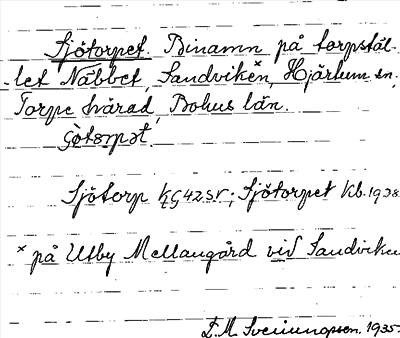 Sjötorpet. Binamn på torpstäl-
let Näbbet, Sandviken×, Hjärtum sn,
Torpe härad, Bohus län.
Sjötorp EG42SV; Sjötorpet Kb. 1938
× på Utby Mellangård vid Sandviken
E. M. 1935